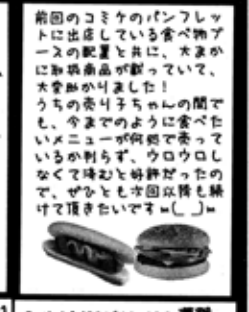 前回のコミケのパンフレッ
トに出店している食べ物ブ
ースの配置と共に、大まか
に取扱商品が載っていて、
大変助かりました！
うちの売り子ちゃんの間で
も、今までのように食べた
いメニューが何処で売って
いるか判らず、ウロウロし
なくて済むと好評だったの
で、ぜひとも次回以降も続
けて頂きたいですm(_ _)m